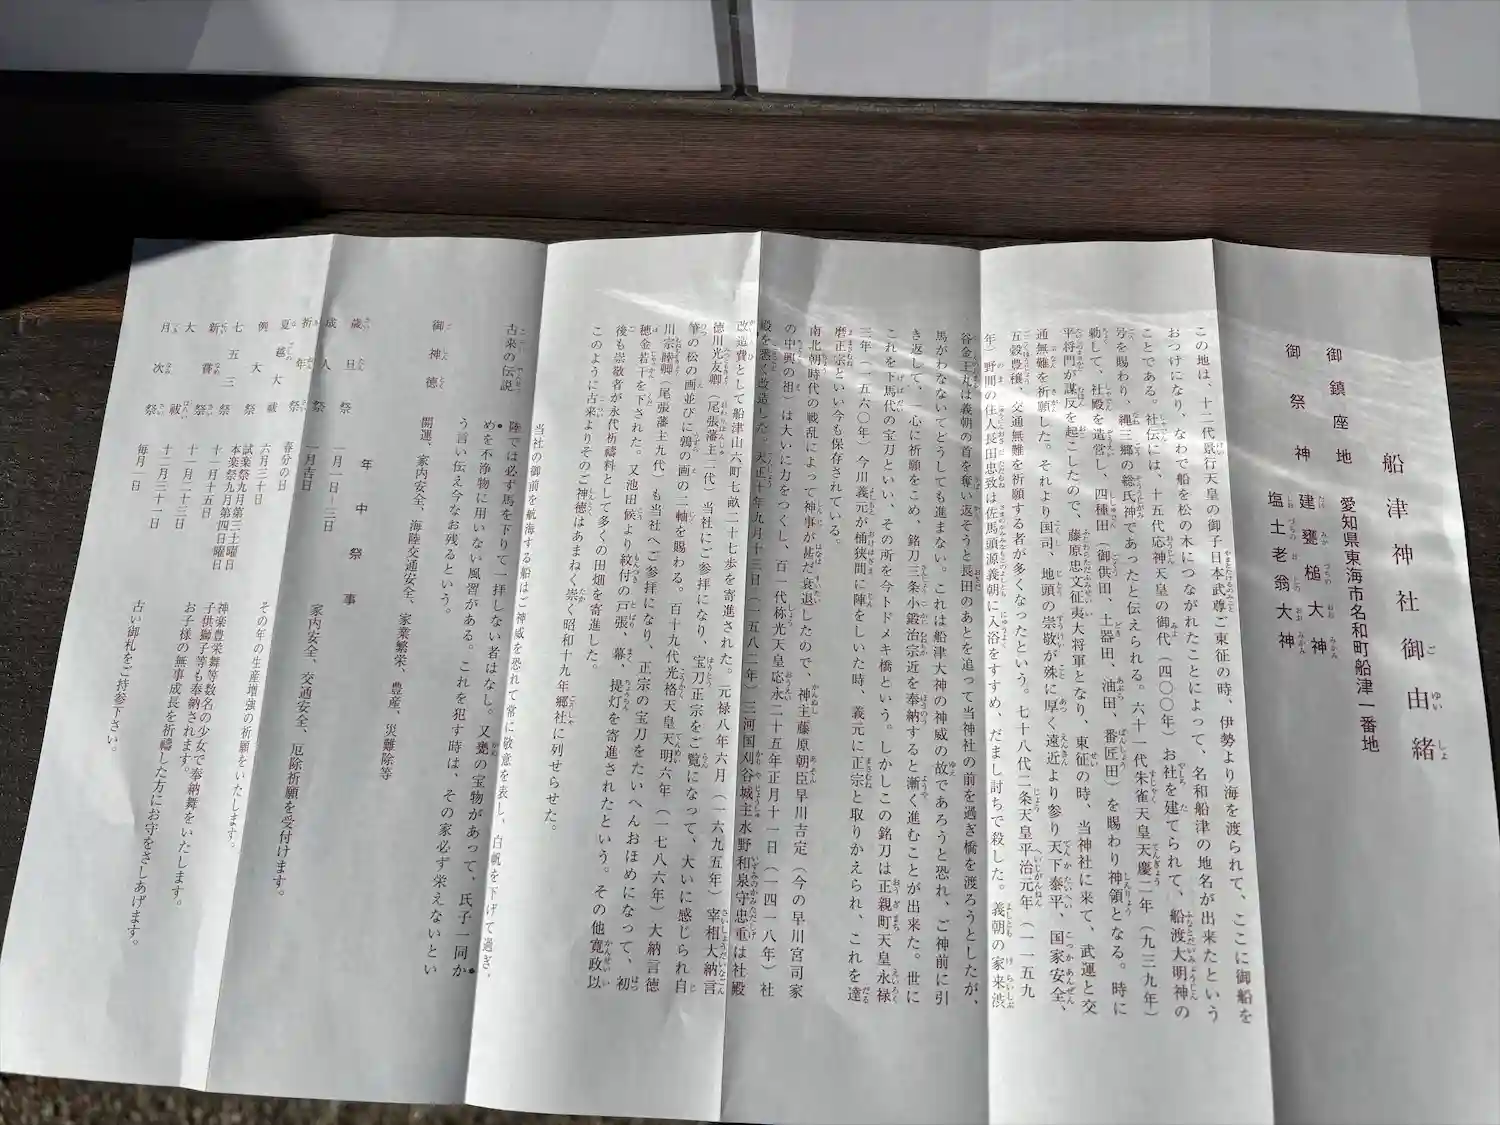 船津神社御由緒
御鎮座地 愛知県東海市名和町船津一番地
御祭神 建甕槌大神
塩土老翁大神
この地は、十二代景行天皇の御子日本武尊ご東征の時、伊勢より海を渡られて、ここに御船を
おつけになり、なわで船を松の木につながれたことによって、名和船津の地名が出来たという
ことである。社伝には、十五代応神天皇の御代（四〇〇年）お社を建てられて、船渡大明神の
号を賜わり、縄三郷の総氏神であったと伝えられる。六十一代朱雀天皇天慶二年（九三九年）
勅して、社殿を造営し、四種田（御供田、土器田、油田、番匠田）を賜わり神領となる。時に
平将門が謀反を起こしたので、藤原忠文征夷大将軍となり、東征の時、当神社に来て、武運と交
通無難を祈願した。それより国司、地頭の崇敬が殊に厚く遠近より参り天下泰平、国家安全、
五穀豊穣、交通無難を祈願する者が多くなったという。七十八代二条天皇平治元年（一一五九
年）野間の住人長田忠致は佐馬頭源義朝に入浴をすすめ、だまし討ちで殺した。義朝の家来渋
谷金王丸は義朝の首を奪い返そうと長田のあとを追って当神社の前を過ぎ橋を渡ろうとしたが、
馬がわなないてどうしても進まない。これは船津大神の神威の故であろうと恐れ、ご神前に引
き返して、心に祈願をこめ、銘刀三条小鍛治宗近を奉納すると漸く進むことが出来た。世に
これを下馬代の宝刀といい、その所を今トドメキ橋という。しかしこの銘刀は正親町天皇永禄
三年（一五六〇年）今川義元が桶狭間に陣をしいた時、義元に正宗と取りかえられ、これを達
磨正宗といい今も保存されている。
南北朝時代の戦乱によって神事が甚だ衰退したので、神主藤原朝臣早川吉定（今の早川宮司家
の中興の祖）は大いに力をつくし、百一代称光天皇応永二十五年正月十一日（一四一八年）社
殿を悉く改造した。天正十年九月十三日（一五八二年）三河国刈谷城主水野和泉守忠重は社殿
改造費として船津山六町七畝二十七歩を寄進された。元禄八年六月（一六九五年）宰相大納言
徳川光友卿（尾張藩主二代）当社にご参拝になり、宝刀正宗をご覧になって、大いに感じられ自
筆の松の画並びに鶉の画の二軸を賜わる。百十九代光格天皇天明六年（一七八六年）大納言徳
川宗睦卿（尾張藩主九代）も当社へご参拝になり、正宗の宝刀をたいへんおほめになって、初
穂金若干を下された。又池田候より紋付の戸張、幕、提灯を寄進されたという。その他寛政以
後も崇敬者が永代祈禱料として多くの田畑を寄進した。
このように古来よりそのご神徳はあまねく崇く昭和十九年郷社に列せらせた。
古来の伝説 当社の御前を航海する船はご神威を恐れて常に敬意を表し、白帆を下げて過ぎ、
陸では必ず馬を下りて一拝しない者はなし。又甕の宝物があって、氏子一同か
めを不浄物に用いない風習がある。これを犯す時は、その家必ず栄えないとい
う言い伝え今なお残るという。
御神徳 開運、家内安全、海陸交通安全、家業繁栄、豊産、災難除等
年中祭事
歳旦祭 一月一日～三日 家内安全、交通安全、厄除祈願を受付けます。
成人祭 一月吉日
祈年祭 春分の日 その年の生産増強の祈願をいたします。
夏越大祓 六月三十日
例大祭 試楽祭九月第三土曜日 神楽豊栄舞等数名の少女で奉納舞をいたします。
本楽祭九月第四日曜日 子供獅子等も奉納されます。
七五三祭 十一月十五日 お子様の無事成長を祈禱した方にお守をさしあげます。
新嘗祭 十一月二十三日
大祓 十二月三十一日 古い御札をご持参下さい。
月次祭 毎月一日